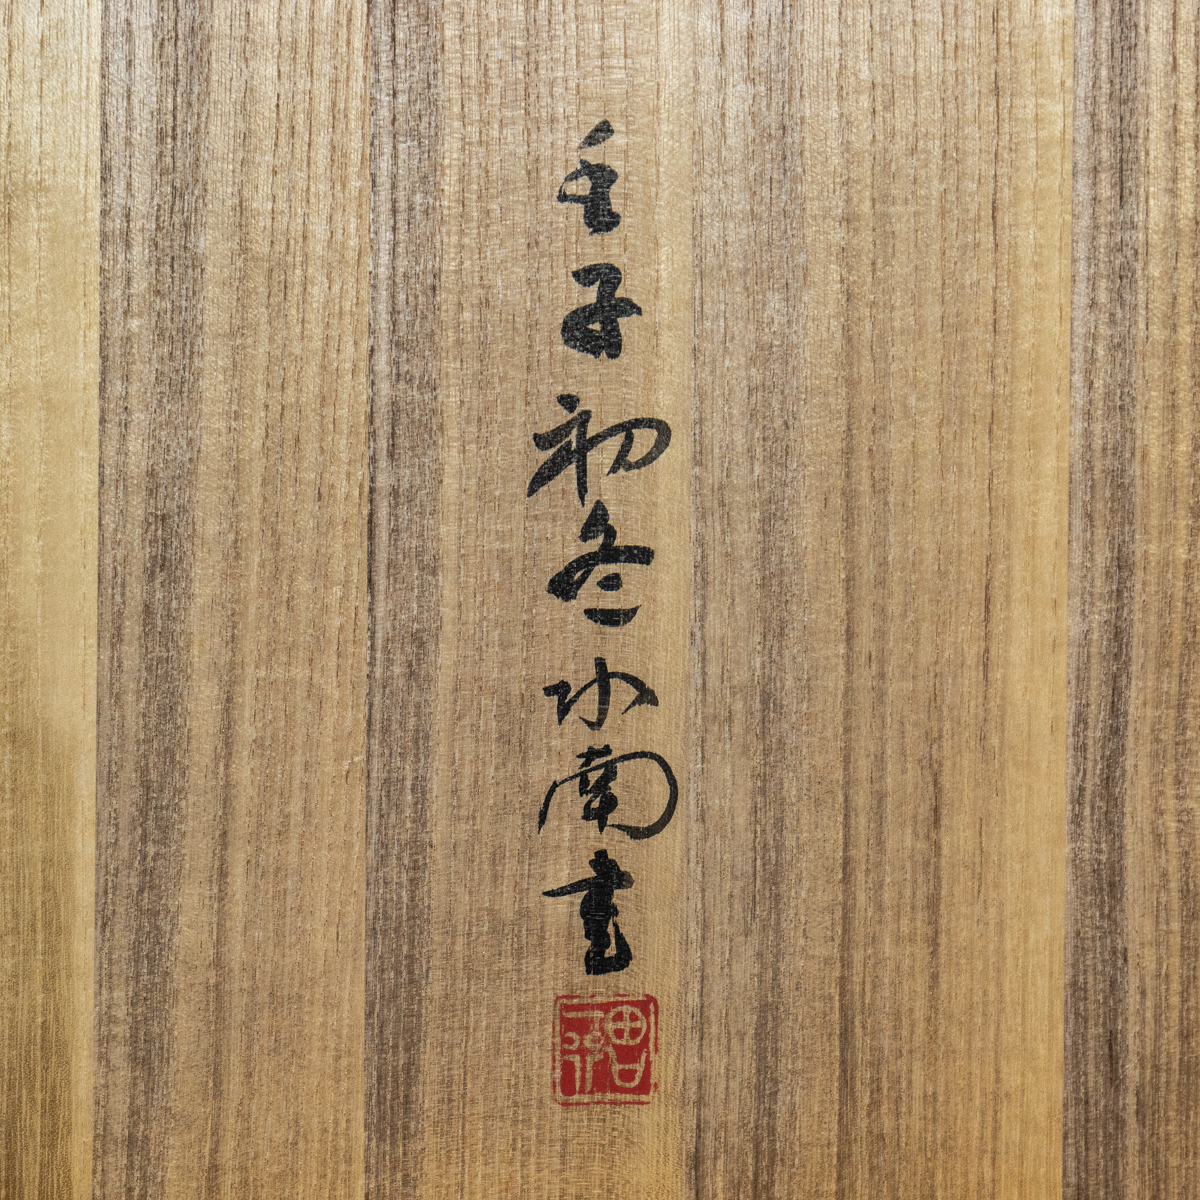 壬子初冬水南書